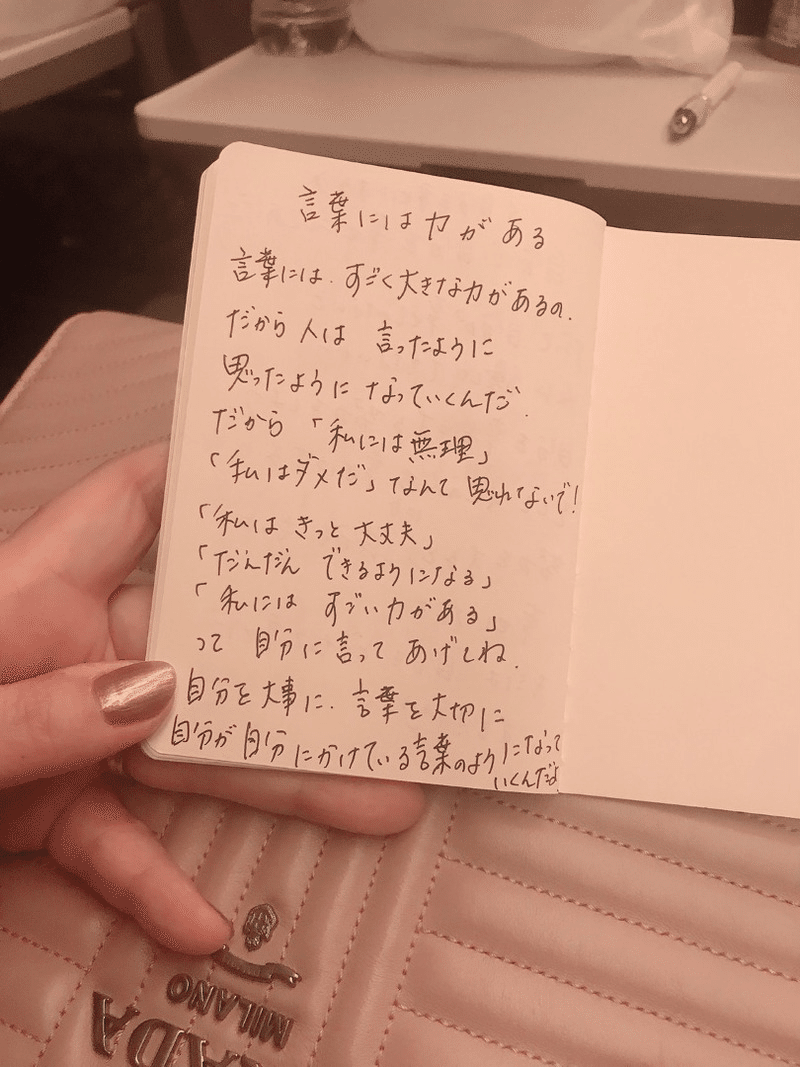 言葉には力がある
言葉には、すごく大きな力があるの。
だから人は 言ったように
思ったように なっていくんだ。
だから 「私には無理」
「私はダメだ」なんて 思わないで!
「私は きっと 大丈夫」
「だんだん できるようになる」
「私には すごい力がある」
って 自分に言って あげてね。
自分を大事に、言葉を大切に
自分が自分にかけている言葉のようになって
いくんだよ
MILANO
ADA